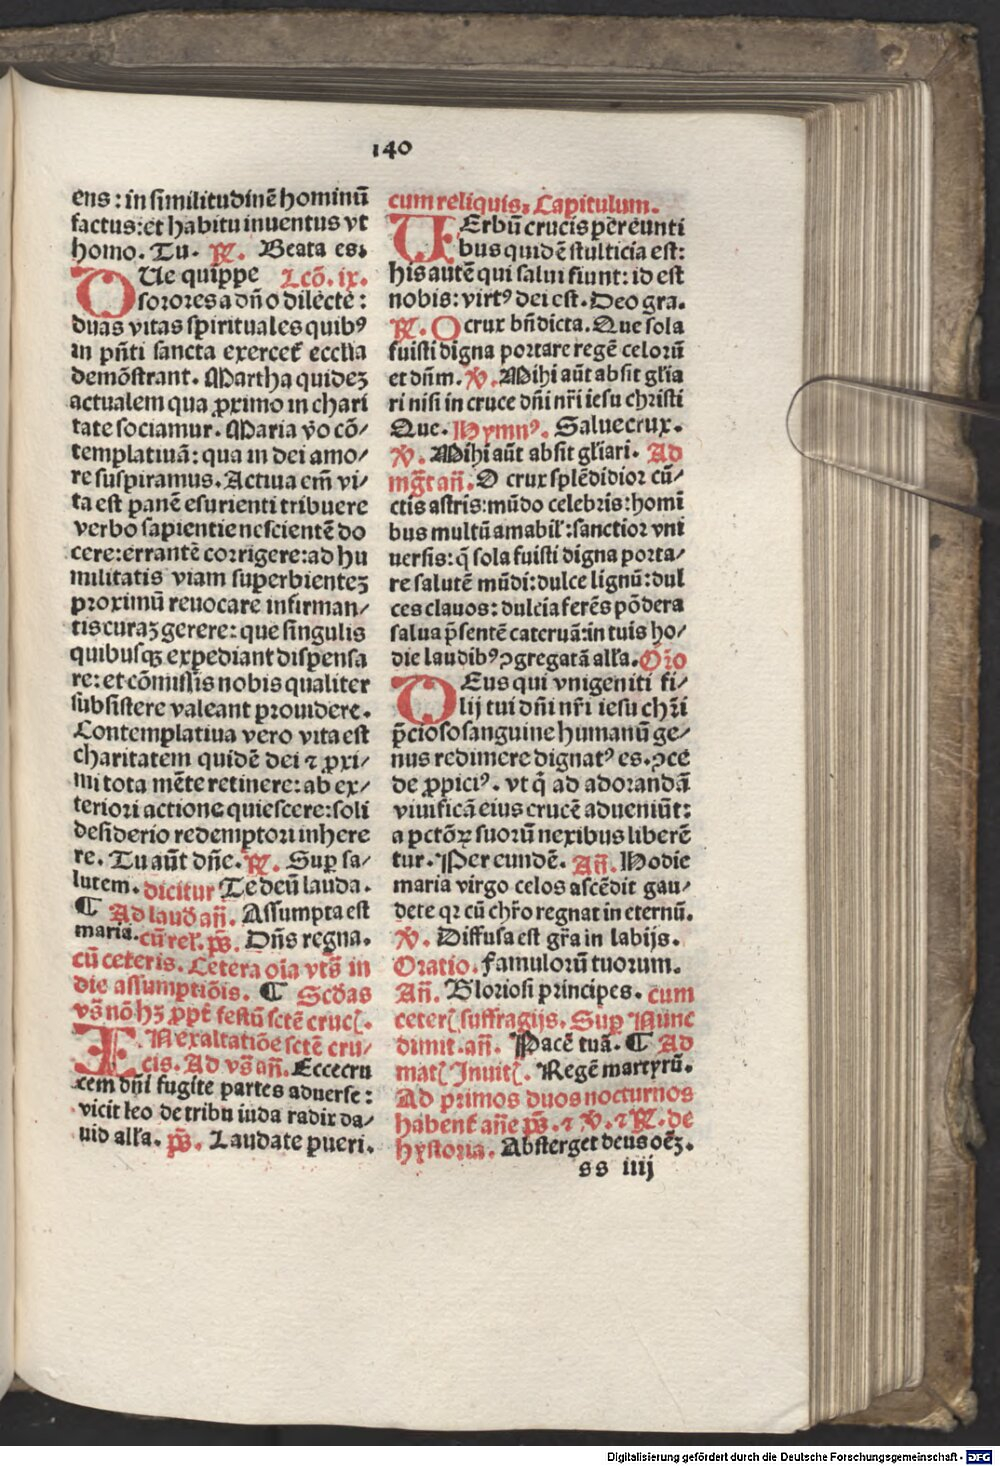 140
ens: in similitudinē hominū
factus: et habitu inuentus vt
homo. Tu. R̷. Beata es.
DUe quippe Lcō. ix.
sorores a dn̄o dilecte:
duas vitas spirituales quibꝰ
in pn̄ti sancta exercet̄ eccl̄ia
demōstrant. Martha quidez
actualem qua ꝓximo in chari
tate sociamur. Maria v̄o cō-
templatiuā: qua in dei amo-
re suspiramus. Actiua em̄ vi-
ta est panē esurienti tribuere
verbo sapientie nescientē do
cere: errantē corrigere: ad hu
militatis viam superbientez
proximū reuocare infirman-
tis curaz gerere: que singulis
quibusqꝫ expediant dispensa
re: et cōmissis nobis qualiter
subsistere valeant prouidere.
Contemplatiua vero vita est
charitatem quidē dei ⁊ ꝓxi-
mi tota mēte retinere: ab ex-
teriori actione quiescere: soli
desiderio redemptori inhere
re. Tu aūt dn̄e. R̷. Suꝑ sa-
lutem. dicitur Te deū lauda.
¶ Ad laud̄ an̄. Assumpta est
maria. cū rel̄. ps̄. Dn̄s regna.
cū ceteris. Cetera oīa vts̄ in
die assumptiōis. ¶ Scd̄as
vs̄ nō hꝫ ꝓpt̄ festū sctē crucꝭ.
IN exaltatiōe sctē cru-
cis. Ad vs̄ an̄. Ecce cru
cem dn̄i fugite partes aduerse:
vicit leo de tribu iuda radix da-
uid all̄a. ps̄. Laudate pueri.
cum reliquis. Capitulum.
VErbū crucis pereunti
bus quidē stulticia est:
his autē qui salui fiunt: id est
nobis: virtꝰ dei est. Deo gra.
R̷. O crux bn̄dicta. Que sola
fuisti digna portare regē celorū
et dn̄m. V̷. Mihi aūt absit gl̄ia
ri nisi in cruce dn̄i nr̄i iesu christi
Que. Hymnꝰ. Salue crux.
V̷. Mihi aūt absit gl̄iari. Ad
mḡt an̄. O crux splēdidior cū-
ctis astris: mūdo celebris: homī
bus multū amabil̄: sanctior vni
uersis: q̄ sola fuisti digna porta-
re salutē mūdi: dulce lignū: dul
ces clauos: dulcia ferēs pōdera
salua p̄sentē cateruā: in tuis ho-
die laudibꝰ ꝯgregatā all̄a. Or̄o
DEus qui vnigeniti fi-
lij tui dn̄i nr̄i iesu chr̄i
p̄cioso sanguine humanū ge-
nus redimere dignatꝰ es. ꝯce
de ꝓpiciꝰ. vt q̄ ad adorandā
viuificā eius crucē adueniūt:
a pctōꝝ suorū nexibus liberē
tur. Per eundē. An̄. Hodie
maria virgo celos ascēdit gau-
dete qꝛ cū chr̄o regnat in eternū.
V̷. Diffusa est gr̄a in labijs.
Oratio. Famulorū tuorum.
An̄. Gloriosi principes. cum
ceterꝭ suffragijs. Suꝑ Nunc
dimit. an̄. Pacē tuā. ¶ Ad
matꝭ Inuitꝭ. Regē martyrū.
Ad primos duos nocturnos
habent̄ an̄e ps̄. ⁊ V̷. ⁊ R̷. de
hystoria. Absterget deus oēz.
ss iiij
Digitalisierung gefördert durch die Deutsche Forschungsgemeinschaft - DFG